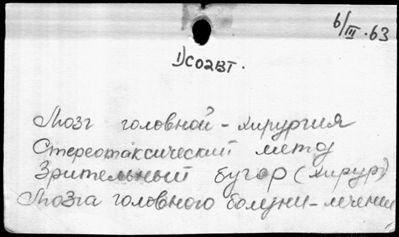 6/III.63
1) соавт.
Мозг головной - хирургия
Стереотаксический метод
Зрительный бугор (хирур)
Мозга головного болезни - лечение